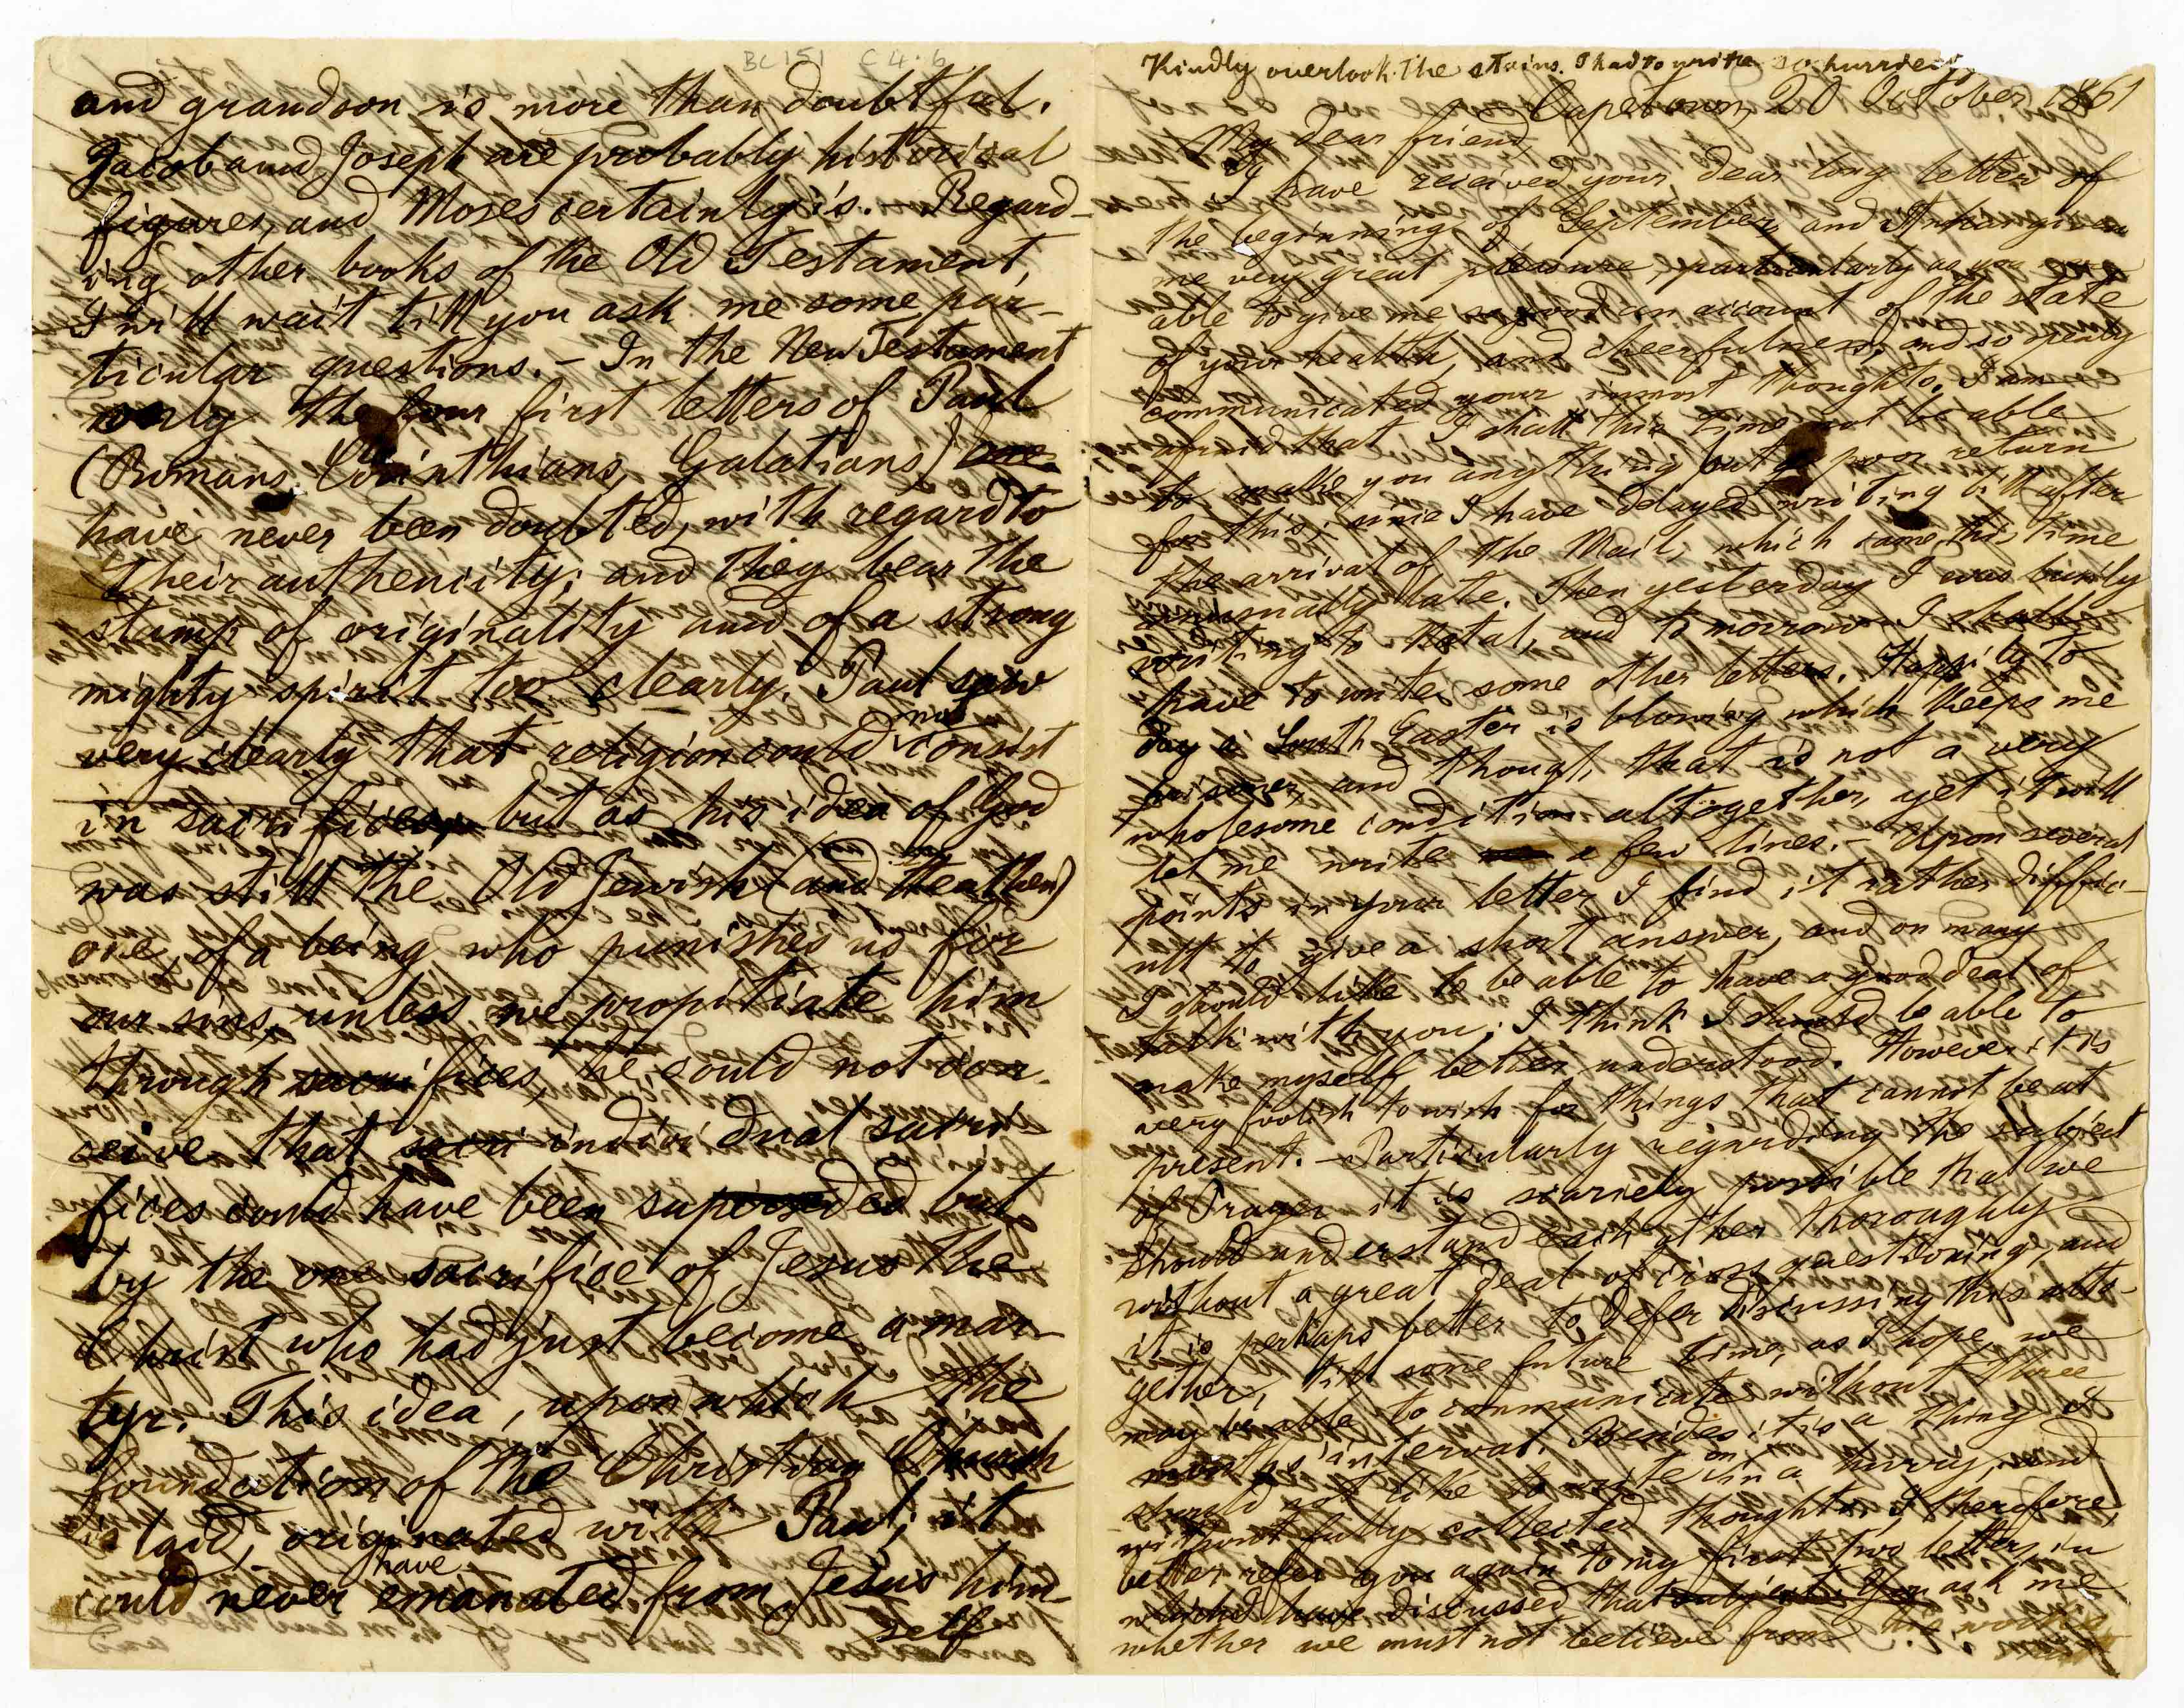 BC 151 C 4.6
Kindly overlook the stains. I had to write so hurriedly
Capetown, 20 October, 1861
My dear friend,
I have received your dear long letter of
the beginning of September, and it has given
me very great pleasure, particularly as you were
able to give me so good an account of the state
of your health, and cheerfulness, and so openly
communicated your inmost thoughts. I am
afraid that I shall this time not be able
to make you anything but a poor return
for this; since I have delayed writing till after
the arrival of the Mail, which came this time
unusually late. Then yesterday I was busily
writing to Natal, and to morrow I shall
have to write some other letters. Happily to
day a South Easter is blowing which keeps me
prisoner, and though that is not a very
wholesome condition altogether, yet it will
let me write a few lines. – Upon several
points in your letter I find it rather diffic-
ult to give a short answer, and on many
I should like to be able to have a good deal of
talk with you; I think I should be able to
make myself better understood. However it is
very foolish to wish for things that cannot be at
present. – Particularly regarding the subject
of Prayer it is scarcely possible that we
should understand each other thoroughly
without a great deal of cross questioning, and
it is perhaps better to defer discussing this alto-
gether, till some future time, as I hope, we
may be able to communicate without three
months' interval. Besides it is a thing I
should not like to write on in a hurry, and
without fully collected thoughts. I therefore,
better refer you again to my first two letters, in
which I have discussed that subject. You ask me
whether we must not believe from his works
and grandson is more than doubtful.
Jacob and Joseph are probably historical
figures, and Moses certainly is. – Regard-
ing other books of the Old Testament,
I will wait till you ask me some par-
ticular questions. – In the New Testament
only the four first letters of Paul
(Romans, Corinthians, Galatians)
have never been doubted, with regard to
their authenticity; and they bear the
stamp of originality and of a strong
mighty spirit too clearly. Paul saw
very clearly that religion could not consist
in sacrifices, but as his idea of God
was still the Old Jewish (and Heathen)
one, of a being who punishes us for
our sins, unless we propitiate him
through sacrifices, he could not con-
ceive that sacri individual sacri-
fices could have been superseded but
by the one sacrifice of Jesus the
Christ who had just become a mar-
tyr. This idea, upon which the
foundation of the Christian Church
is laid, originated with Paul; it
could never have emanated from Jesus him-
self